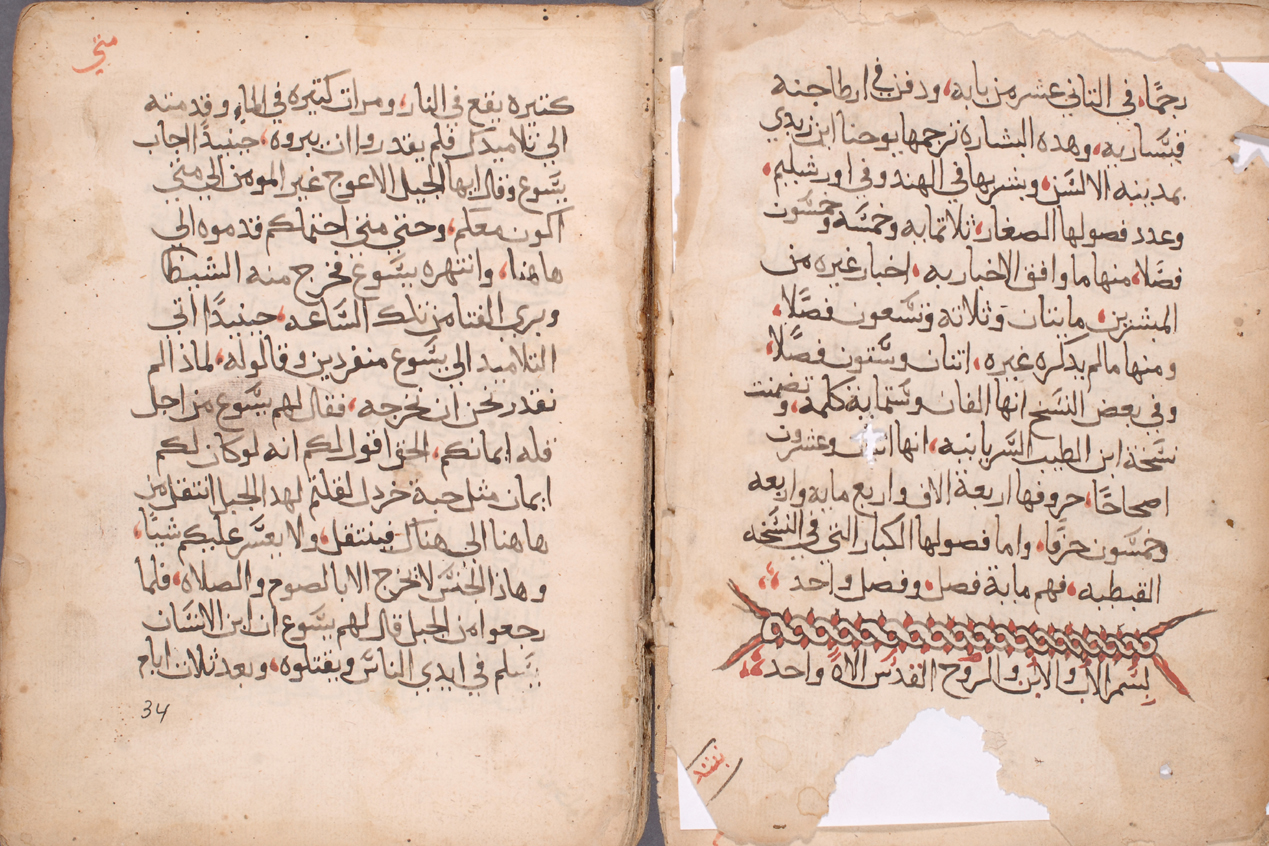 رجمًا، في التاني عشر من بابه، ودفن في ارطاجنه
قيساريه، وهده البشاره ترجمها يوحنا ابن زبدي
بمدينه الافسس، وبشر بها في الهند وفي اورشليم،
وعدد فصولها الصغار، ثلاتمايه وخمسه وخمسون
فصلا، منها ما وافق الاخبار به، اخبار غيره من
المبشرين، مايتان وثلاثه وتسعون فصلًا،
ومنها مالم يدكره غيره، اتنان وستون فصلًا،
وفي بعض النسخ انها الفان وستمايه كلمه، وتضمنت
نسخة ابن الطيب السريانيه، انها وعشرون
اصحاحًا، حروفها اربعة الاف واربع مايه واربعه
وخمسون حرفًا، واما فصولها الكبار التي في النسخه
القبطيه، فهم ماية فصل، وفصل واحد
بسم الاب والابن والروح القدس الاه واحد
متي
كتيره يقع في النار، ومرات كتيره في الماء وقدمته
الي تلاميدك فلم يقدروا ان يبروه، حينيدًا اجاب
يسوع وقال ايها الجيل الاعوج غير المومن الي متي
اكون معكم، وحتي متي احتملكم قدموه الي
هاهنا، وانتهره يسوع فخرج منه الشيطا
وبري الفتا من تلك الساعه، حينيدًا اتي
التلاميد الي يسوع منفردين وقالو له، لماذا لم
نقدر نحن ان نخرجه، فقال لهم يسوع من اجل
قلة ايمانكم، الحق اقول لكم انه لو كان لكم
ايمان مثل حبة خردل لقلتم لهدا الجبل انتقل من
هاهنا الي هناك فينتقل، ولا يعسر عليكم شيًا،
وهاذا الجنس لا يخرج الا بالصوم والصلاه، فلما
رجعوا من الجبل قال لهم يسوع ان ابن الانسان
يسلم في ايدي الناس ويقتلوه، وبعد ثلات ايام
34